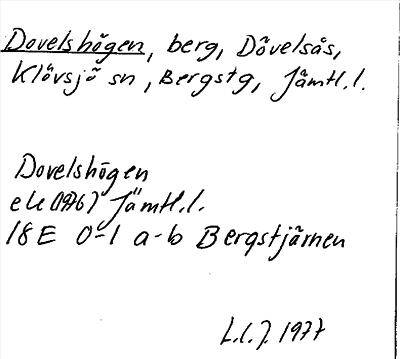 Dovelshögen, berg, Dövelsås,
Klövsjö sn, Bergstg, Jämtl.l.
Dovelshögen
ek (1976) Jämtl.l.
18E 0-1 a-b Bergstjärnen
L.l.J. 1977